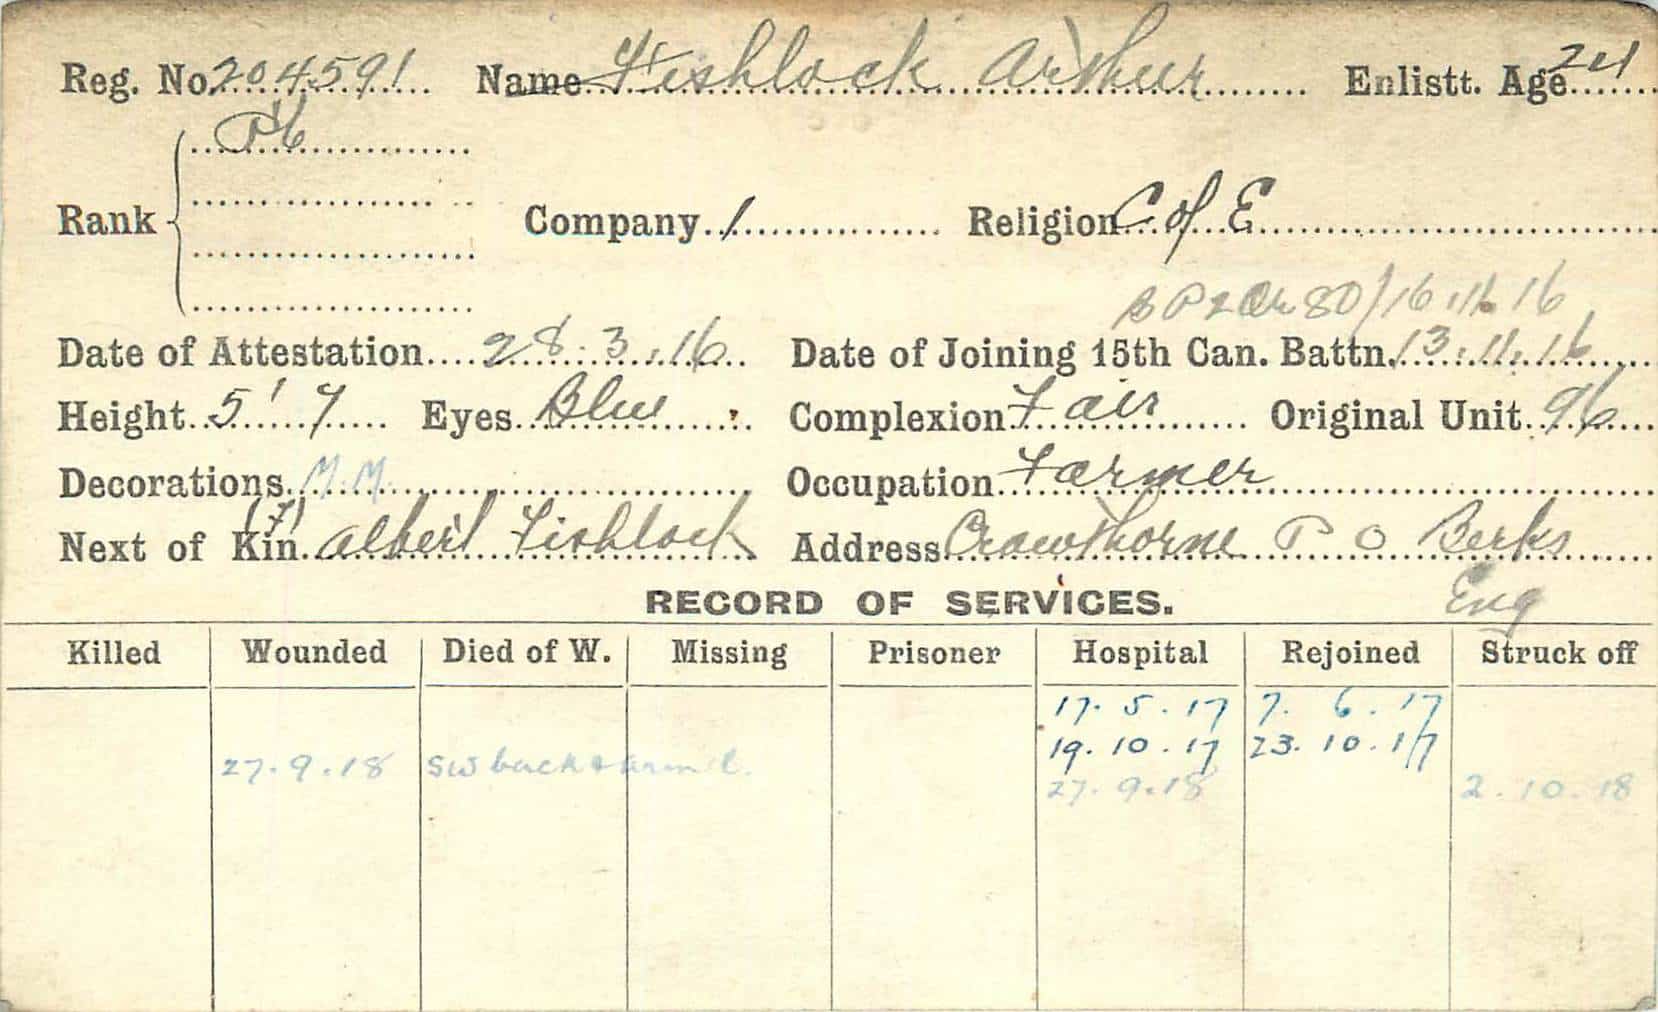 Reg. No. 204591 Name Fishlock Arthur Enlistt. Age 24
Pte
Rank Company 1 Religion C of E
B P 2 Or 80/16.11.16
Date of Attestation 28.3.16 Date of Joining 15th Can. Battn. 13.11.16
Height 5' 7 Eyes Blue Complexion Fair Original Unit 96
Decorations M.M. Occupation Farmer
(F)
Next of Kin Albert Fishlock Address Crawthorne P O Berks
RECORD OF SERVICES. Eng
Killed Wounded Died of W. Missing Prisoner Hospital Rejoined Struck off
17.5.17 7.6.17
19.10.17 23.10.17
27.9.18 SW back & arm l.
27.9.18 2.10.18